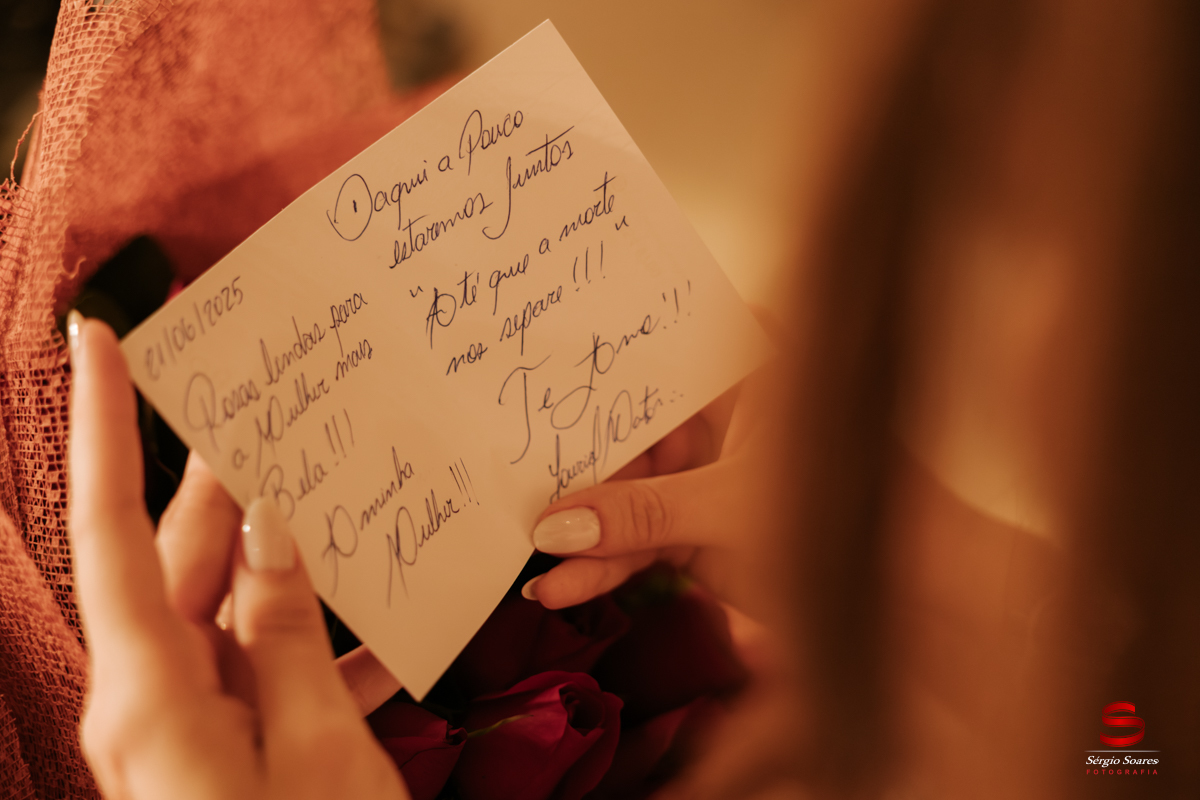 21/06/2025
Rosas lindas para
a Mulher mais
Bela!!!
A minha
Mulher!!!
Daqui a Pouco
estaremos Juntos
"Até que a morte
nos separe!!!"
Te Amo!!!
Sérgio Soares
FOTOGRAFIA